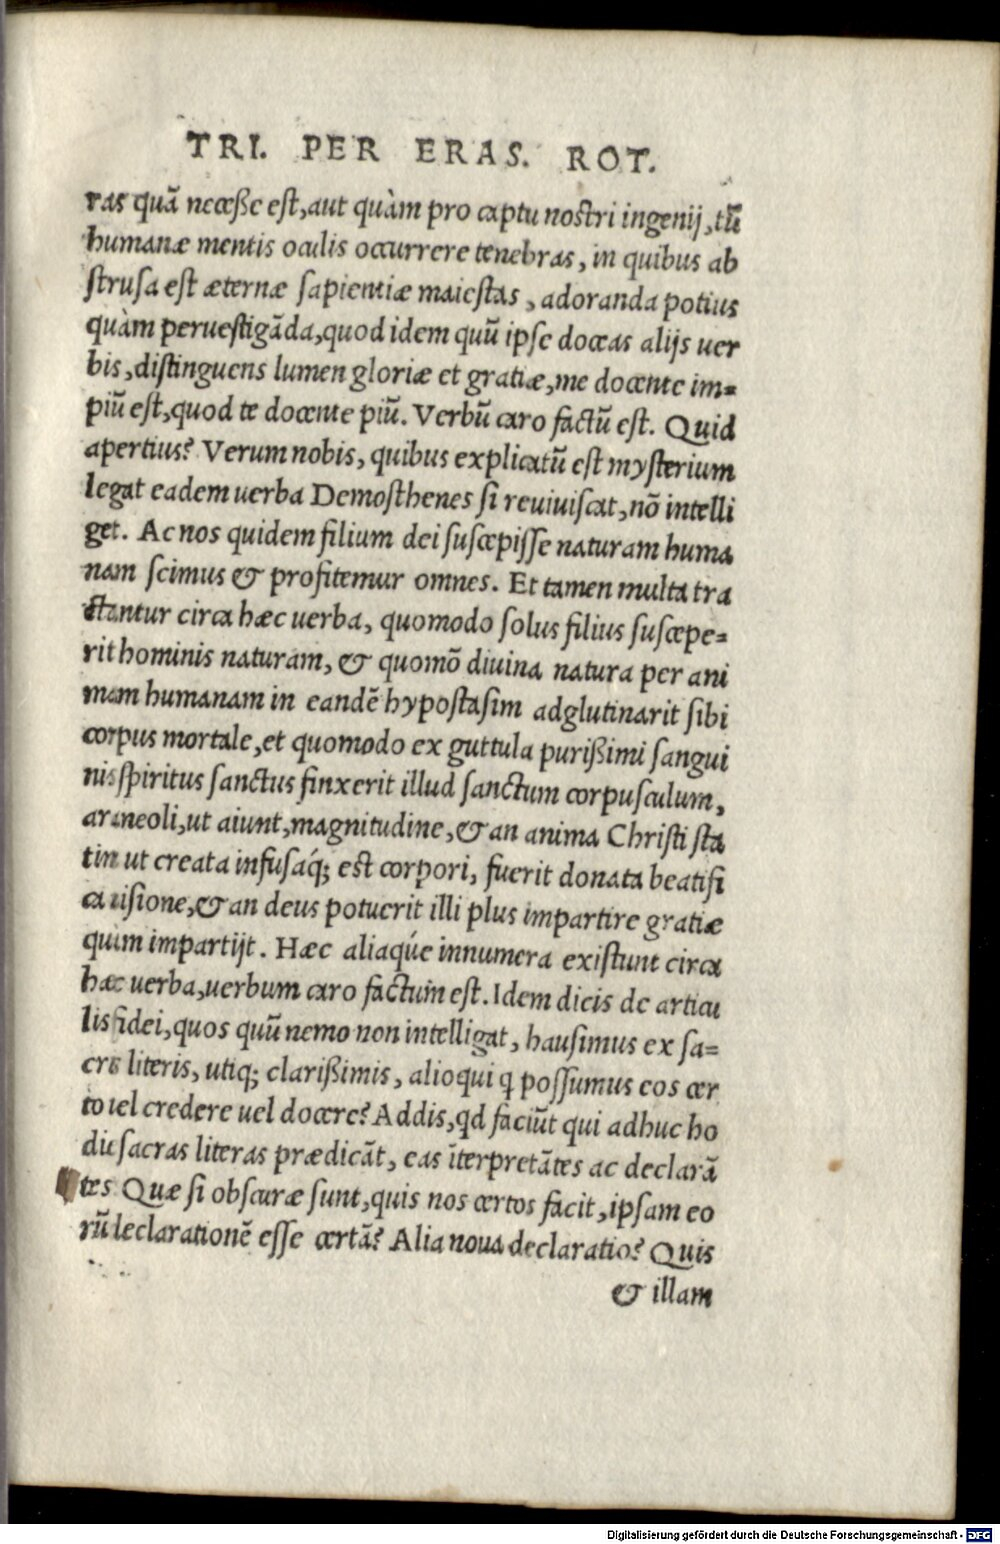 TRI. PER ERAS. ROT.
ras quā necesse est, aut quàm pro captu nostri ingenij, tū
humanæ mentis oculis occurrere tenebras, in quibus ab
strusa est æternæ sapientiæ maiestas, adoranda potius
quàm peruestigāda, quod idem quū ipse doceas alijs uer
bis, distinguens lumen gloriæ et gratiæ, me docente im=
piū est, quod te docente piū. Verbū caro factū est. Quid
apertius? Verum nobis, quibus explicatū est mysterium
legat eadem uerba Demosthenes si reuiuiscat, nō intelli
get. Ac nos quidem filium dei suscepisse naturam huma
nam scimus & profitemur omnes. Et tamen multa tra
ctantur circa hæc uerba, quomodo solus filius suscepe=
rit hominis naturam, & quomō diuina natura per ani
mam humanam in eandē hypostasim adglutinarit sibi
corpus mortale, et quomodo ex guttula purißimi sangui
nis spiritus sanctus finxerit illud sanctum corpusculum,
araneoli, ut aiunt, magnitudine, & an anima Christi sta
tim ut creata infusáq; est corpori, fuerit donata beatifi
ca uisione, & an deus potuerit illi plus impartire gratiæ
quàm impartijt. Hæc aliaqúe innumera existunt circa
hæc uerba, uerbum caro factum est. Idem dicis de articu
lis fidei, quos quū nemo non intelligat, hausimus ex sa=
cris literis, utiq; clarißimis, alioqui q possumus eos cer
to uel credere uel docere? Addis, qd faciūt qui adhuc ho
die sacras literas prædicāt, eas īterpretātes ac declarā
tes Quæ si obscuræ sunt, quis nos certos facit, ipsam eo
rū declarationē esse certā? Alia noua declaratio? Quis
& illam
Digitalisierung gefördert durch die Deutsche Forschungsgemeinschaft - DFG